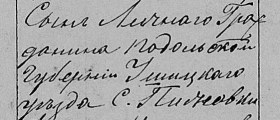 Сынъ Личнаго Граж
данина Подольской
Губерніи Ушицкаго
уезда С. Пижовки